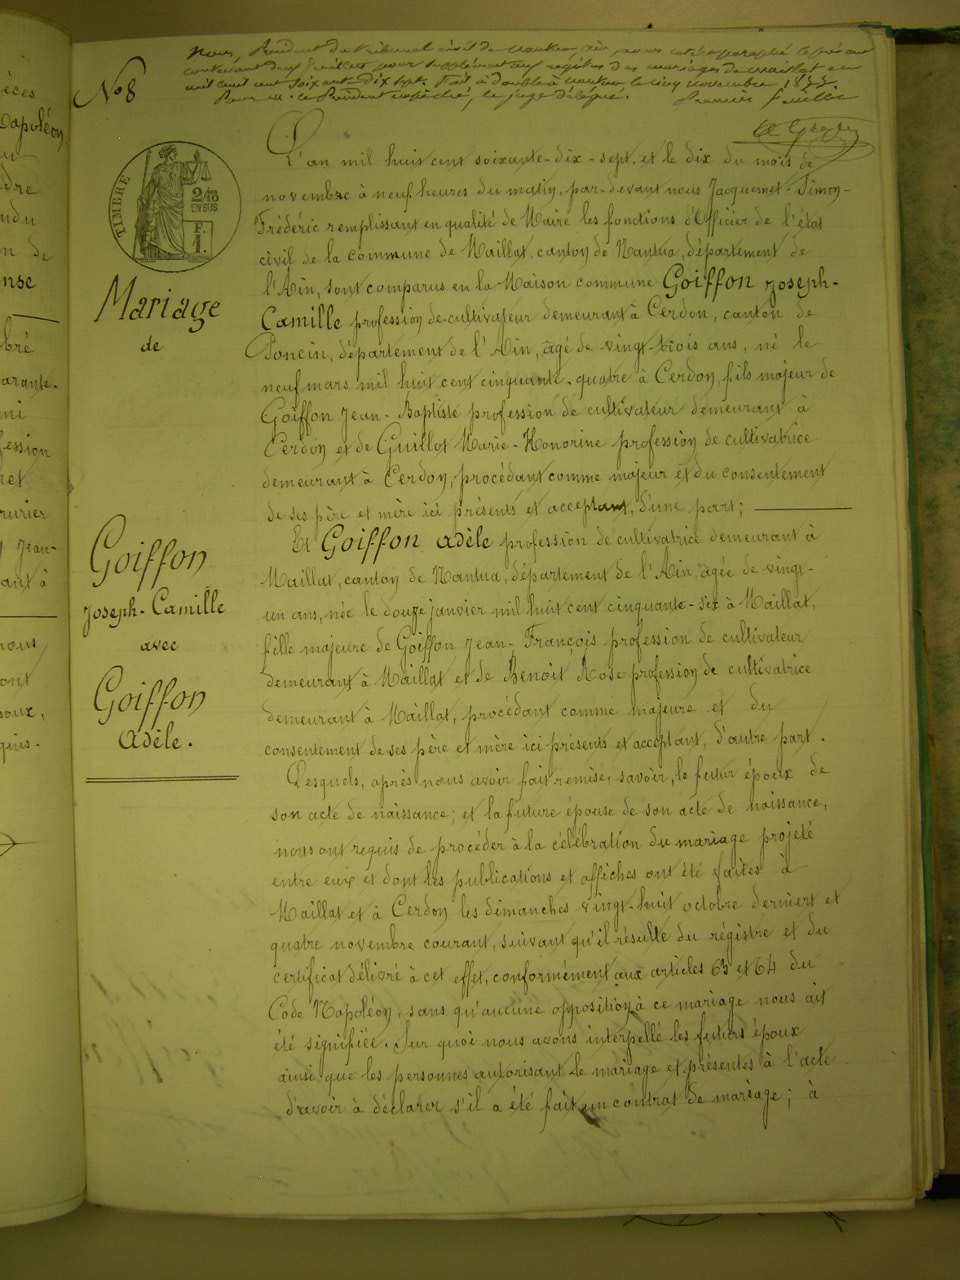 Nous, Président du tribunal civil de Nantua, avons coté et paraphé le présent
contenant deux feuilles pour supplément aux registres des mariages de Maillat en
mil huit cent soixante dix sept. Fait à Nantua le cinq novembre 1877.
Pour M. le Président empêché, le juge délégué. Première feuille
N° 8
TIMBRE
2/10
EN SUS
F.
1.
Mariage
de
Goiffon
Joseph-Camille
avec
Goiffon
Adèle.
L'an mil huit cent soixante-dix-sept, et le dix du mois de
novembre à neuf heures du matin, par-devant nous Jacquemet-Simon-
Frédéric remplissant en qualité de Maire les fonctions d'Officier de l'état
civil de la commune de Maillat, canton de Nantua, département de
l'Ain, sont comparus en la Maison commune Goiffon Joseph-
Camille profession de cultivateur demeurant à Cerdon, canton de
Poncin, département de l'Ain, âgé de vingt-trois ans, né le
neuf mars mil huit cent cinquante-quatre à Cerdon, fils majeur de
Goiffon Jean-Baptiste profession de cultivateur demeurant à
Cerdon et de Guillot Marie-Honorine profession de cultivatrice
demeurant à Cerdon, procédant comme majeur et du consentement
de ses père et mère ici présents et acceptant, d'une part;
Et Goiffon Adèle profession de cultivatrice demeurant à
Maillat, canton de Nantua, département de l'Ain, âgée de vingt-
un ans, née le douze janvier mil huit cent cinquante-six à Maillat,
fille majeure de Goiffon Jean-François profession de cultivateur
demeurant à Maillat et de Benoit Rose profession de cultivatrice
demeurant à Maillat, procédant comme majeure et du
consentement de ses père et mère ici présents et acceptant, d'autre part.
Lesquels, après nous avoir fait remise, savoir, le futur époux de
son acte de naissance; et la future épouse de son acte de naissance,
nous ont requis de procéder à la célébration du mariage projeté
entre eux et dont les publications et affiches ont été faites à
Maillat et à Cerdon les dimanches vingt-huit octobre dernier et
quatre novembre courant, suivant qu'il résulte du régistre et du
certificat délivré à cet effet, conformément aux articles 63 et 64 du
Code Napoléon, sans qu'aucune opposition à ce mariage nous ait
été signifiée. Sur quoi nous avons interpellé les futurs époux
ainsi que les personnes autorisant le mariage et présentes à l'acte
d'avoir à déclarer s'il a été fait un contrat de mariage; à